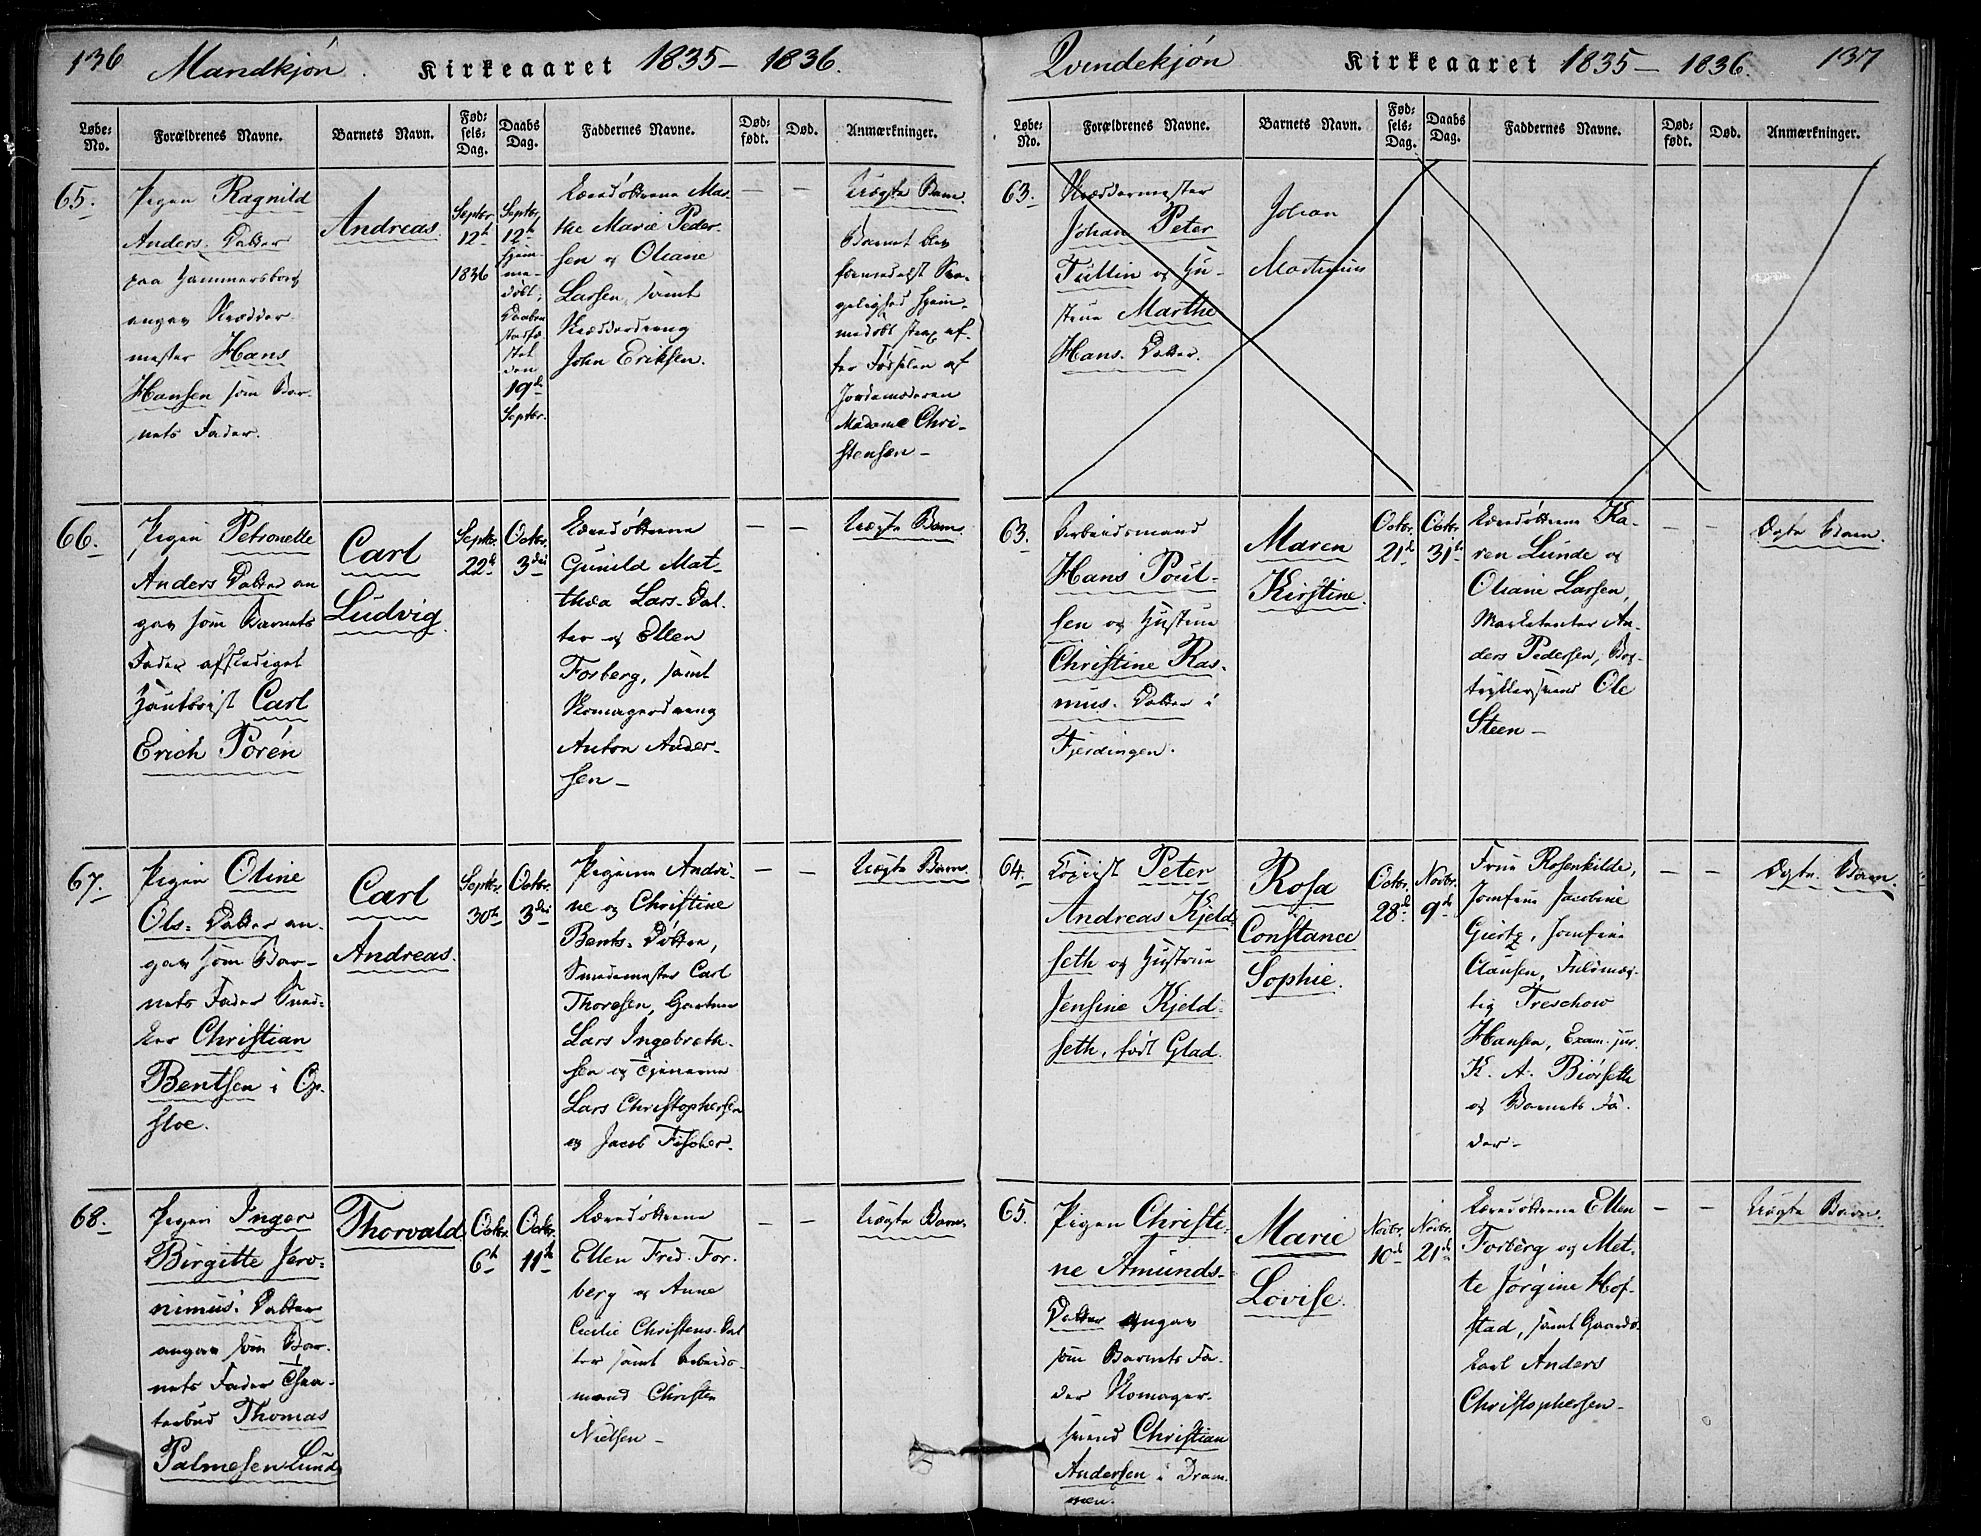 136 Mandkjøn. Kirkeaaret 1835 – 1836.
Løbe-No. Forældrenes Navne. Barnets Navn. Fødsels-Dag. Daabs Dag. Faddernes Navne. Dødfødt. Død. Anmærkninger.
65.
Pigen Ragnild
Anders. Datter
paa Hammersborg
angav Skrædder
mester Hans
Hansen som Bar-
nets Fader.
Andreas
Septbr
12te
1836
Septbr
12te
hjem-
me-
døbt,
Daaben
stadfæ-
stet
den
19de
Septbr.
Mar-
the Marie Peder-
sen og Oliane
Larsen, samt
Skrædderdreng
John Eriksen.
— —
Uægte Barn.
Barnet blev
formedelst Sva-
gelighed hjem-
medøbt strax ef-
ter Fødselen af
Jordemoderen
Madame Chri-
stensen –
66.
Pigen Petronelle
Anders Datter an
gav som Barnets
Fader afskediget
Hautboist Carl
Erich Porén
Carl
Ludvig.
Septbr.
22de
Octbr.
3die
Gunild Mat-
thea Lars-Dat-
ter og Ellen
Forberg, samt
Skomagerdreng
Anton Ander-
sen –
— —
Uægte Barn.
67.
Pigen Oline
Ols- Datter an-
gav som Bar-
nets Fader Sned-
ker Christian
Bentsen i Op-
sloe.
Carl
Andreas.
Septbr.
30te
Octbr.
3die
Pigerne Andri-
ne og Christine
Bents- Døttre,
Smedemester Carl
Thoresen, Gartner
Lars Ingebreth-
sen og Tjenerne
Lars Christophersen
og Jacob Fischer.
— —
Uægte Barn.
68.
Pigen Inger
Birgitte Jero-
nimus: Datter
angav som Bar-
nets Fader Thea-
terbud Thomas
Palmesen Lund
Thorvald
Octbr.
6te
Octbr.
11te
Ellen Fred. For-
berg og Anne
Cecilie Christens-Dat
ter samt Arbeids-
mand Christen
Nielsen –
— —
Uægte Barn.
Qvindekjøn Kirkeaaret 1835 – 1836. 137
Løbe-No. Forældrenes Navne. Barnets Navn. Fødsels-Dag. Daabs Dag. Faddernes Navne. Dødfødt. Død. Anmærkninger.
63.
Skræddermester
Johan Peter
Tullin og Hu-
strue Marthe
Hans. Datter.
Johan
Martinius
63.
Arbeidsmand
Hans Poul-
sen og Hustrue
Christine Ras-
mus. Datter i
Fjerdingen.
Maren
Kirstine.
Octbr.
21de
Octbr.
31te
Ka-
ren Lunde og
Oliane Larsen,
Marketenter An-
ders Pedersen, Bog-
trykkersvend Ole
Steen –
— —
Ægte Barn.
64.
Copist Peter
Andreas Kjeld-
seth og Hustrue
Jensine Kjeld-
seth, født Glad.
Rosa
Constance
Sophie.
Octbr.
28de
Novbr.
9de
Frue Rosenkilde,
Jomfrue Jacobine
Giertz, Jomfrue
Clausen, Fuldmæg-
tig Treschow
Hansen, Exam. jur.
K. A. Biørseth
og Barnets Fa-
der –
— —
Ægte Barn.
65.
Pigen Christi-
ne Amunds-
Datter angav
som Barnets Fa-
der Skomager-
svend Christian
Andersen i Dram-
men.
Marie
Lovise.
Novbr.
10de
Novbr.
21de
Ellen
Forberg og Met-
te Jørgine Hof-
stad, samt Gaards-
karl Anders
Christophersen –
— —
Uægte Barn.